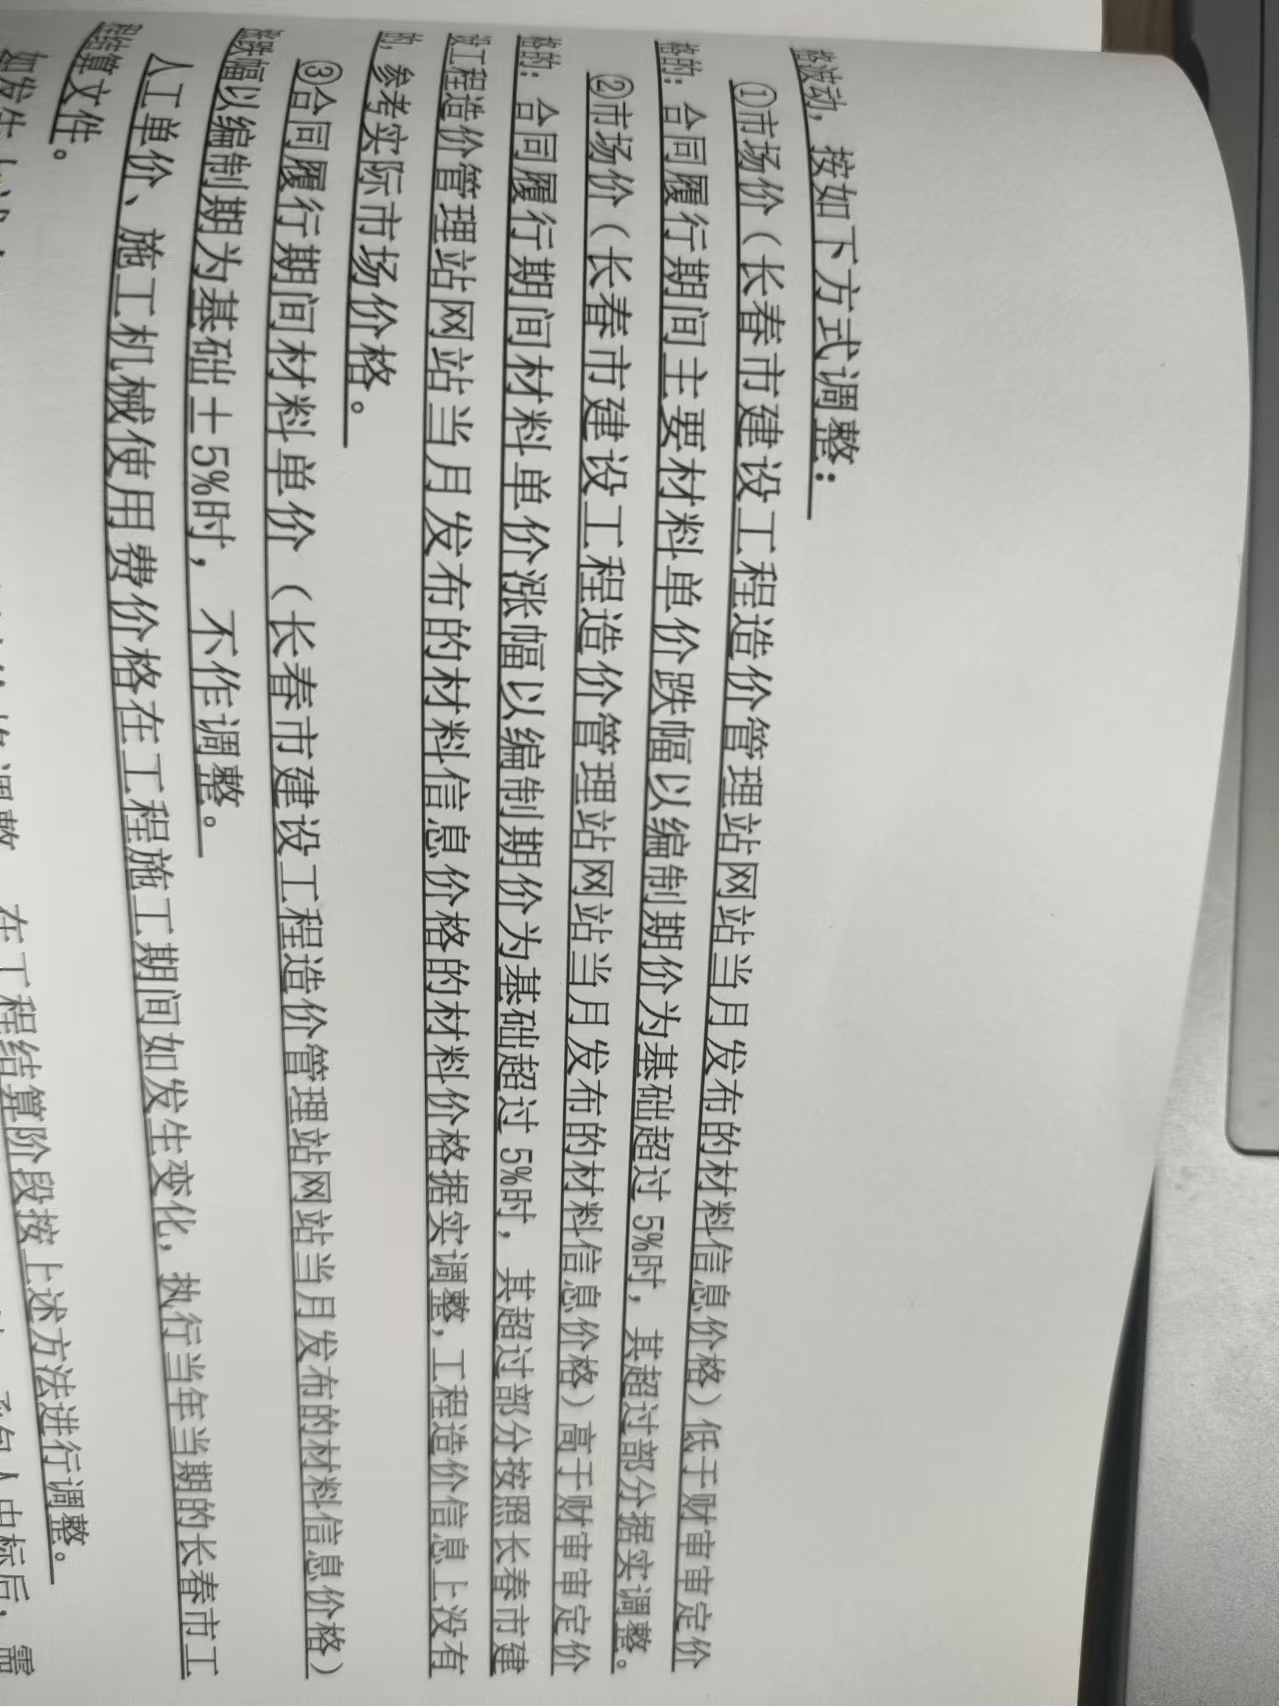 波动，按如下方式调整：
①市场价（长春市建设工程造价管理站网站当月发布的材料信息价格）低于财审审定价
格的：合同履行期间主要材料单价跌幅以编制期价为基础超过 5%时，其超过部分据实调整。
②市场价（长春市建设工程造价管理站网站当月发布的材料信息价格）高于财审审定价
格的：合同履行期间材料单价涨幅以编制期价为基础超过 5%时，其超过部分按照长春市建
工程造价管理站网站当月发布的材料信息价格的材料价格据实调整，工程造价信息上没有
的，参考实际市场价格。
③合同履行期间材料单价（长春市建设工程造价管理站网站当月发布的材料信息价格）
跌幅以编制期为基础±5%时，不作调整。
人工单价、施工机械使用费价格在工程施工期间如发生变化，执行当年当期的长春市工
结算文件。
如发生 调整 在工程结算阶段按上述方法进行调整。
承包人中标后，需